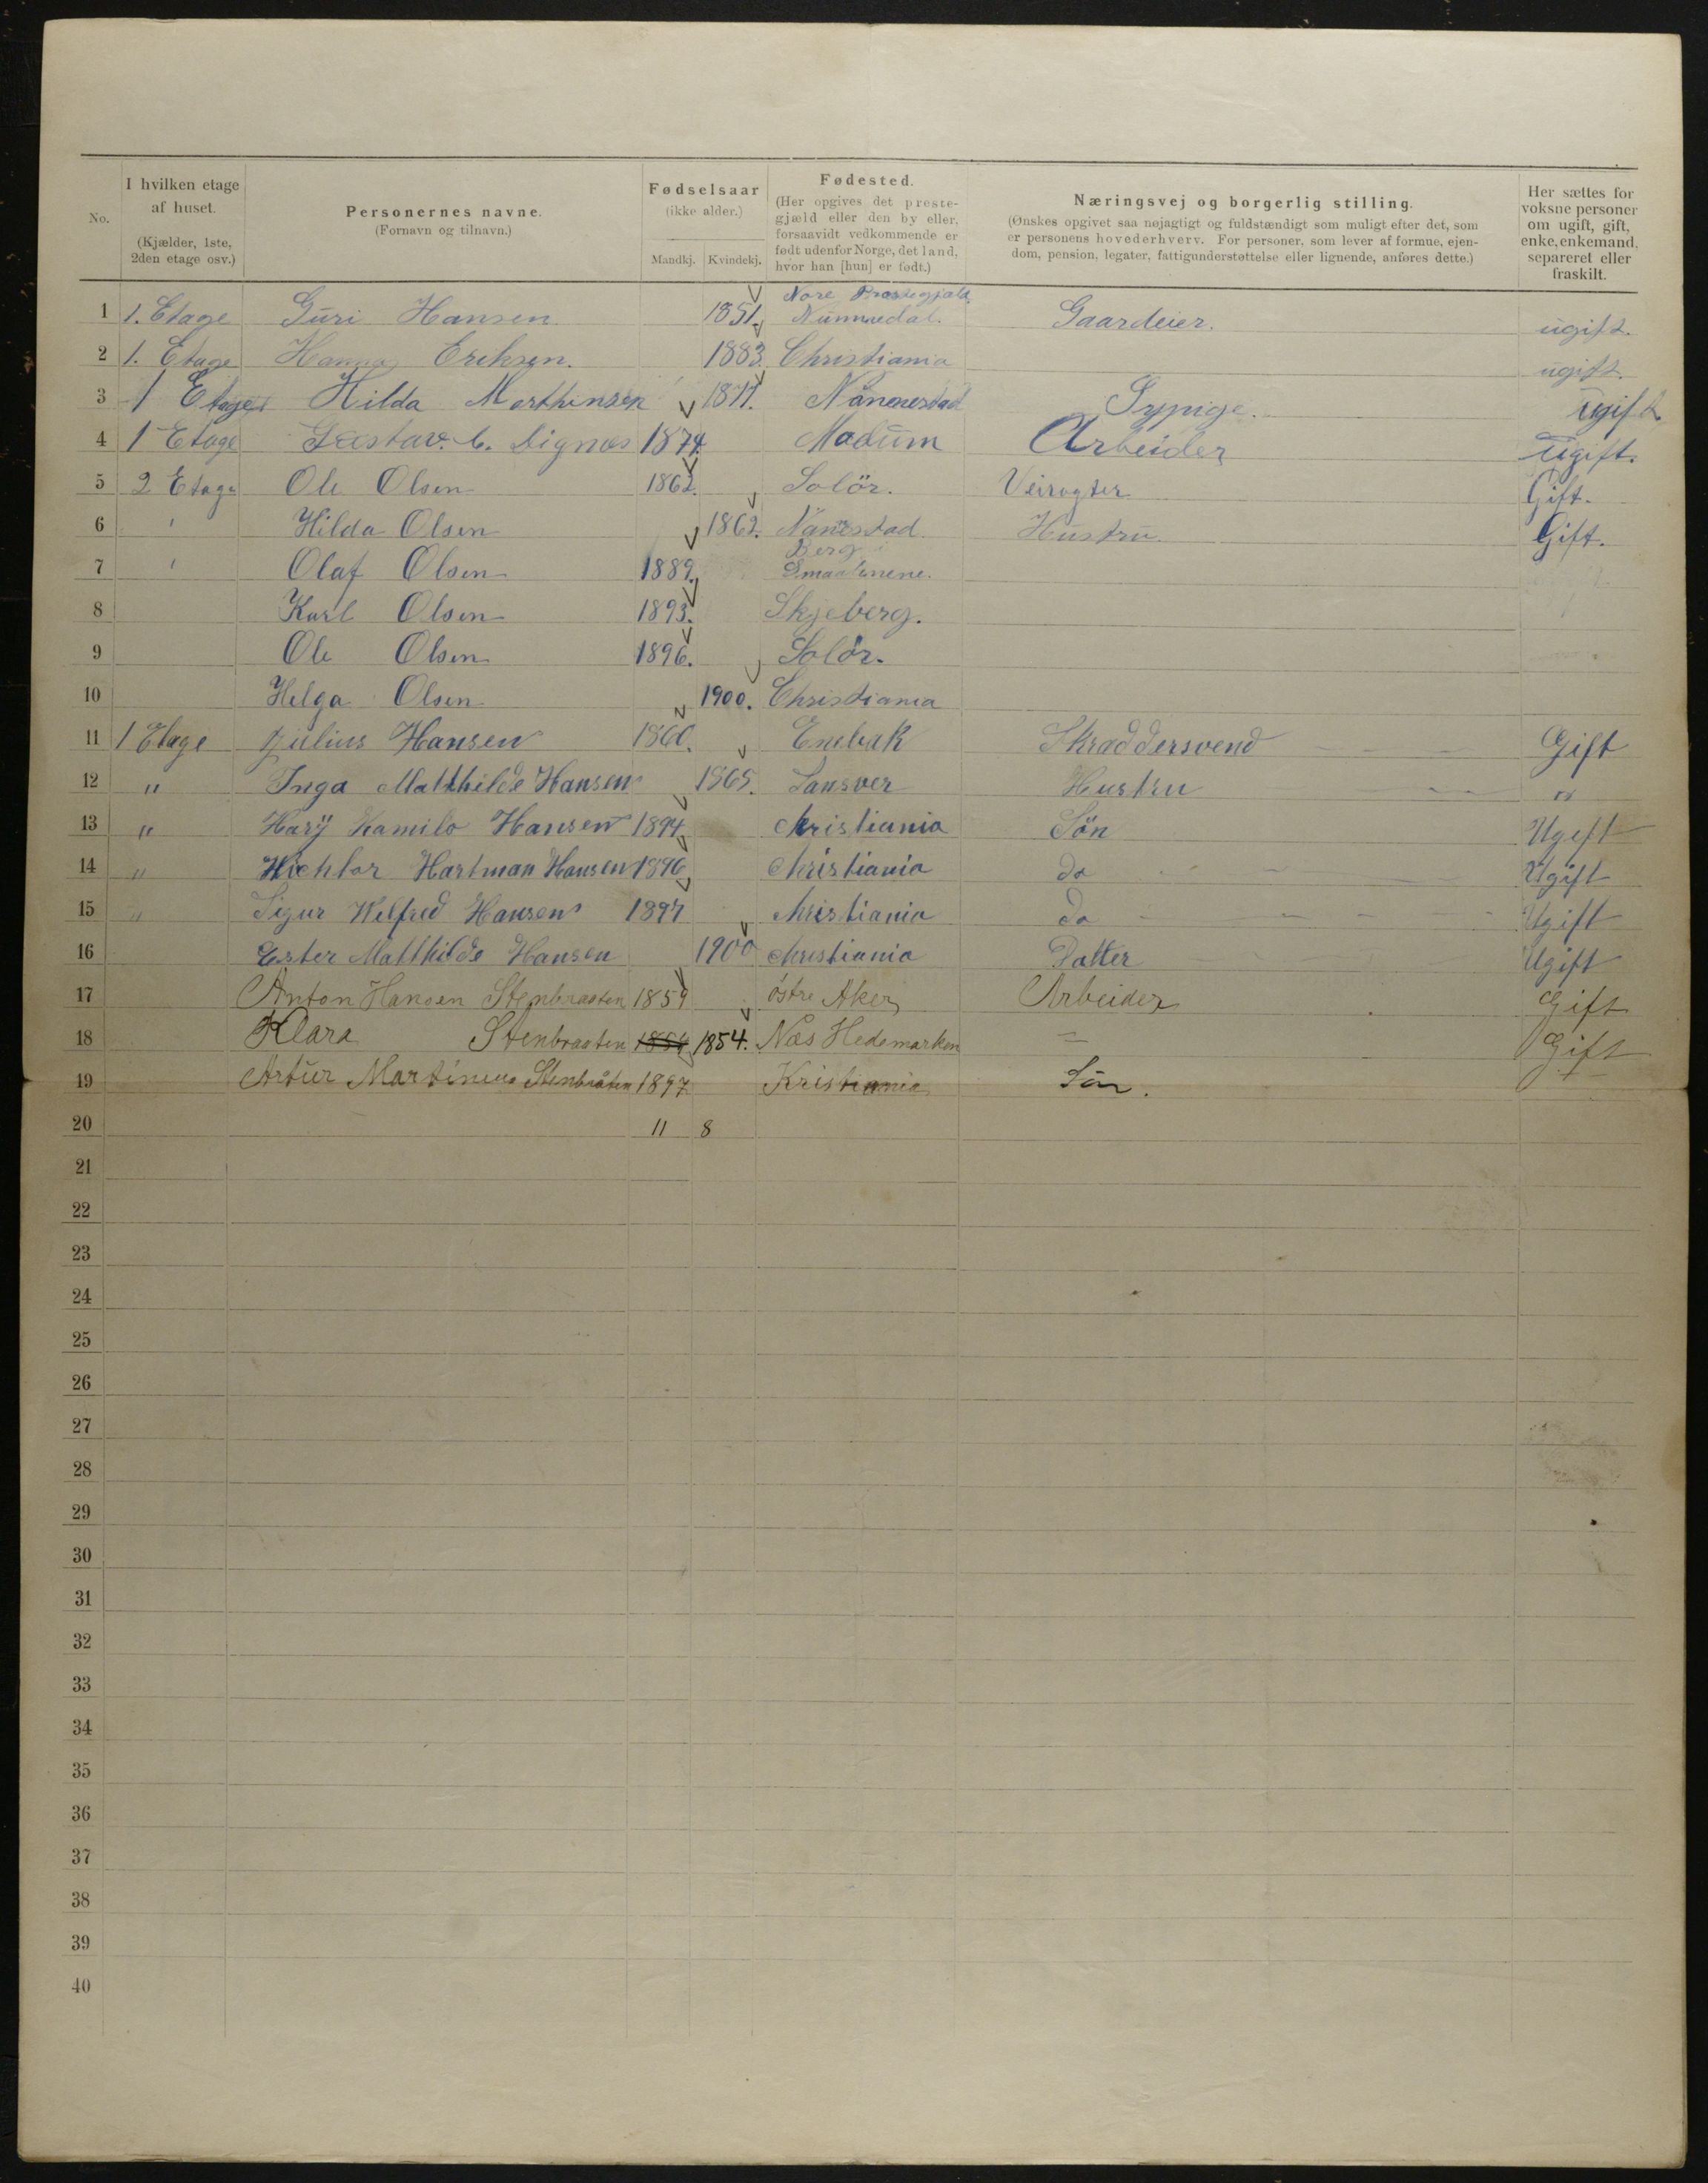 No. I hvilken etage af huset. (Kjælder, 1ste, 2den etage osv.) Personernes navne. (Fornavn og tilnavn.) Fødselsaar (ikke alder.) Mandkj. Kvindekj. Fødested. (Her opgives det prestegjæld eller den by eller, forsaavidt vedkommende er født udenfor Norge, det land, hvor han [hun] er født.) Næringsvej og borgerlig stilling. (Ønskes opgivet saa nøjagtigt og fuldstændigt som muligt efter det, som er personens hovederhverv. For personer, som lever af formue, ejendom, pension, legater, fattigunderstøttelse eller lignende, anføres dette.) Her sættes for voksne personer om ugift, gift, enke, enkemand, separeret eller fraskilt.
1 1. Etage Guri Hansen 1851. Nore Præstegjæld. Nummedal. Gaardeier. ugift.
2 1. Etage Hanna Eriksen. 1883. Christiania ugift.
3 1 Etage Hilda Morthensen 1877. Nannestad Sypige. ugift.
4 1 Etage Gustav. C. Lignes 1874. Modum Arbeider ugift.
5 2 Etage Ole Olsen 1862. Solör. Veivogter Gift.
6 " Hilda Olsen 1862. Nanestad Hustru Gift.
7 " Olaf Olsen 1889. Berg Smaalenene.
8 Karl Olsen 1893. Skjeberg.
9 Ole Olsen 1896. Solör.
10 Helga Olsen 1900. Christiania
11 1 Etage Julius Hansen 1860. Enebak Skraddersvend Gift
12 " Inga Matthilde Hansen 1865. Hustru "
13 " Harÿ Kamilo Hansen 1894 Christiania Sön Ugift
14 " Hartman Hansen 1896 Christiania do Ugift
15 " Sigur Wilfred Hansen 1897 Christiania do Ugift
16 Ester Matthilde Hansen 1900 Christiania Datter Ugift
17 Anton Hansen Stenbraaten 1859 östre Aker Arbeider Gift
18 Klara Stenbraaten 1854 1854. Næs Hedemarken — Gift
19 Artur Martinius Stenbråten 1897 Kristiania Sön.
20 11 8
21
22
23
24
25
26
27
28
29
30
31
32
33
34
35
36
37
38
39
40